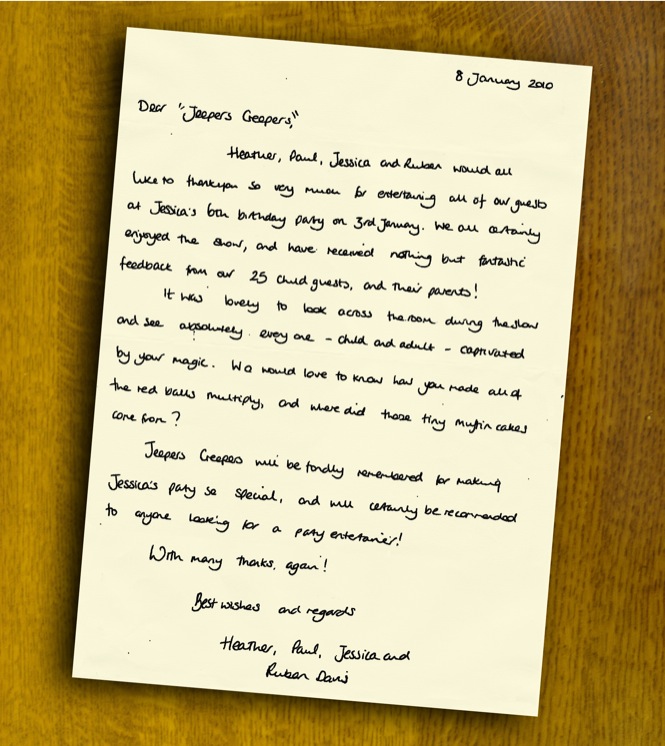 8 January 2010
Dear "Jeepers Creepers,"
Heather, Paul, Jessica and Ruben would all
like to thankyou so very much for entertaining all of our guests
at Jessica's 6th birthday party on 3rd January. We all certainly
enjoyed the show, and have received nothing but fantastic
feedback from our 25 child guests, and their parents!
It was lovely to look across the room during the show
and see absolutely every one - child and adult - captivated
by your magic. We would love to know how you made all of
the red balls multiply, and where did those tiny muffin cakes
come from?
Jeepers Creepers will be fondly remembered for making
Jessica's party so special, and will certainly be recommended
to anyone looking for a party entertainer!
With many thanks, again!
Best wishes and regards
Heather, Paul, Jessica and
Ruben Davis